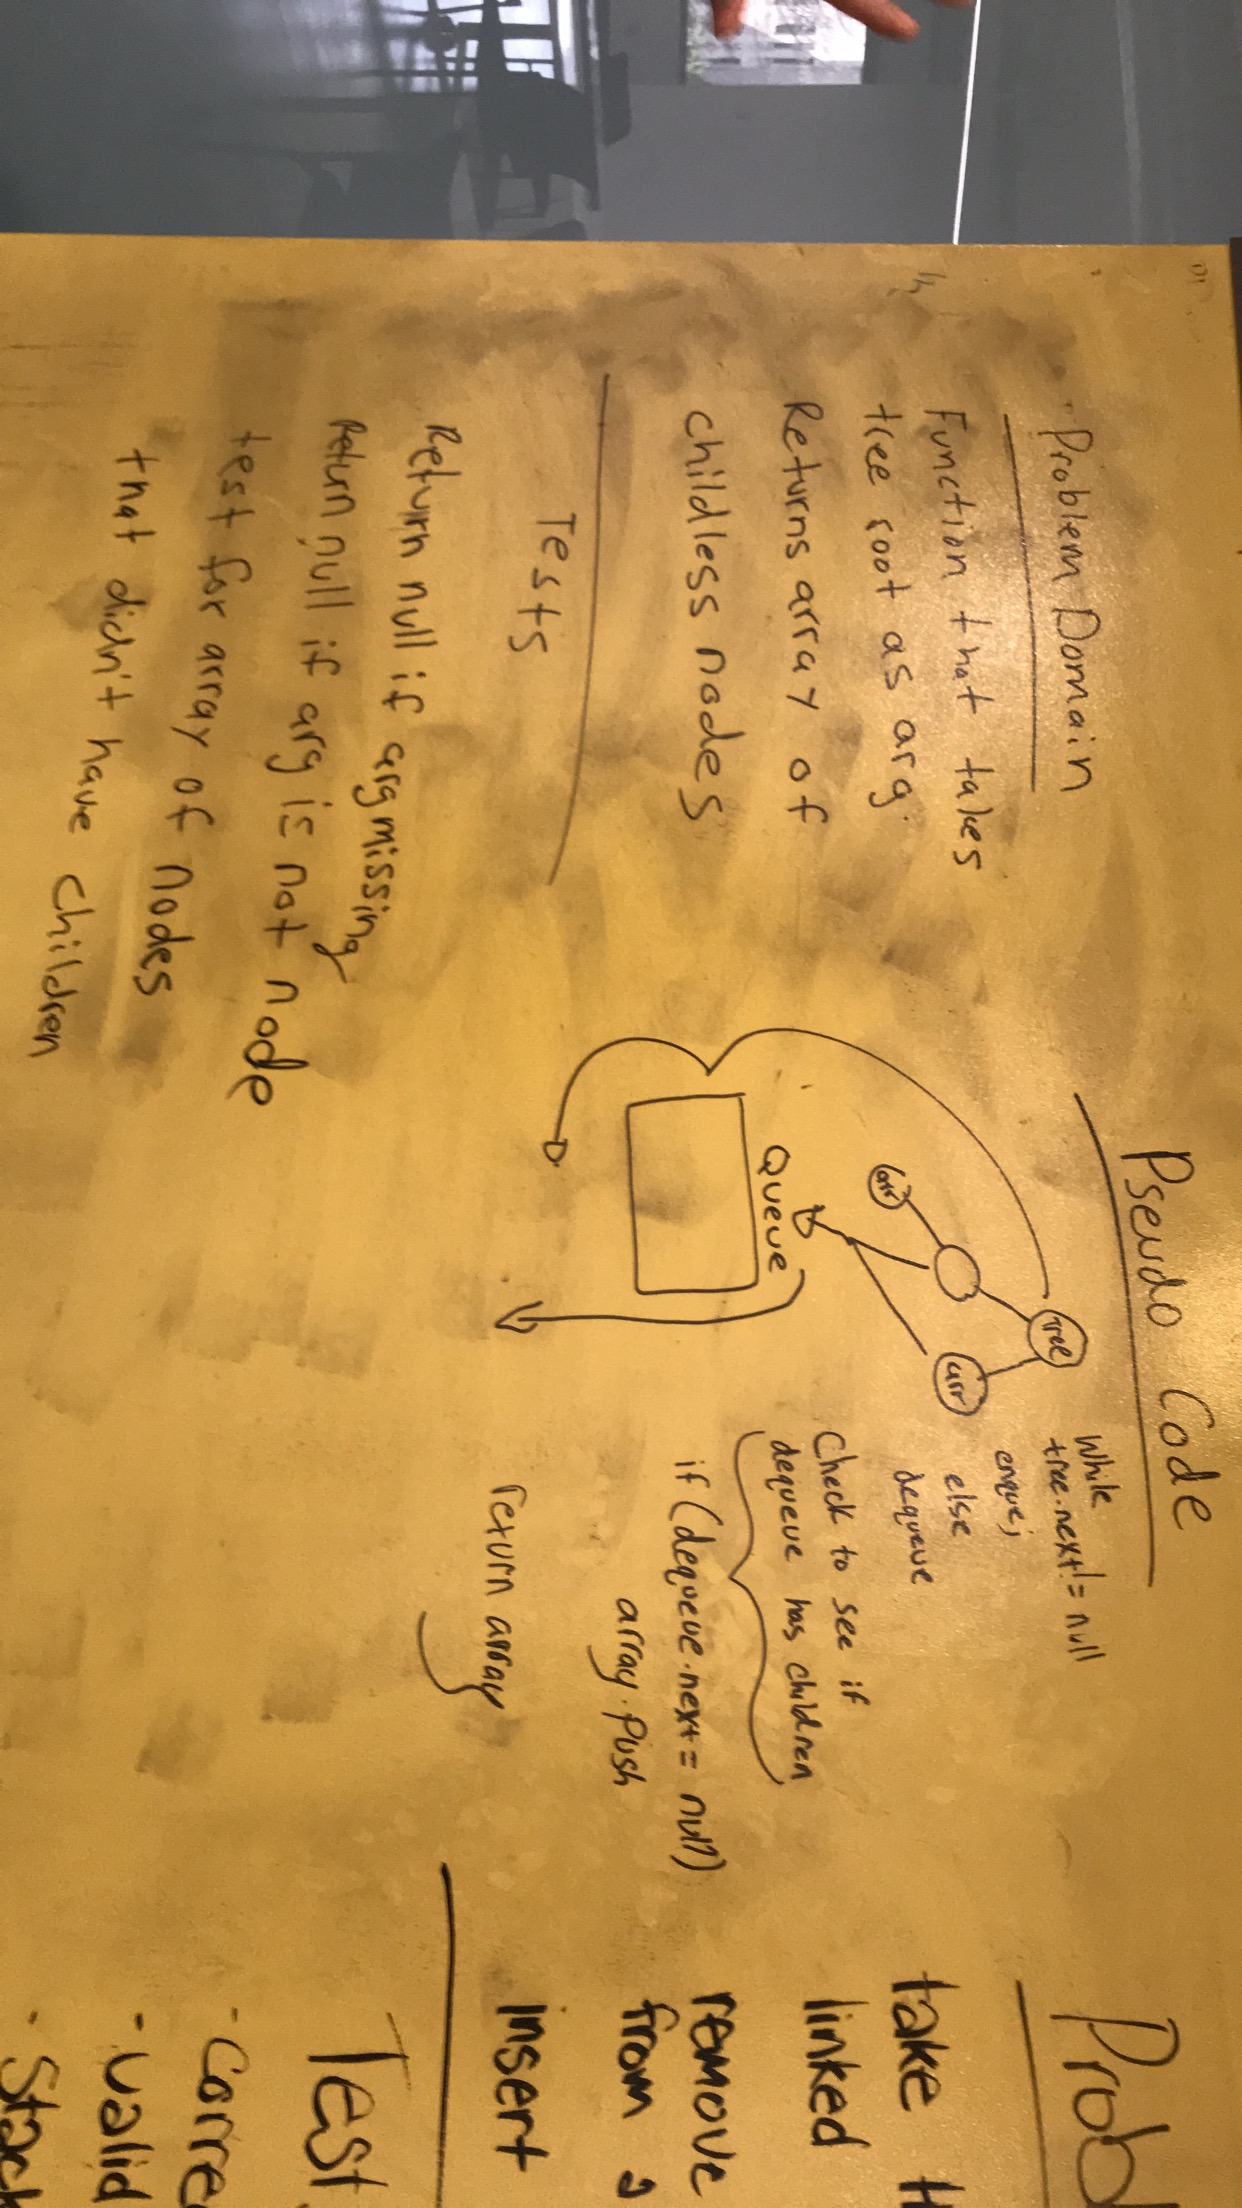 Problem Domain
Function that takes
tree root as arg.
Returns array of
childless nodes
Tests
Return null if arg missing
Return null if arg is not node
test for array of nodes
that didn't have children
Pseudo Code
Tree
arr
arr
Queue
While
tree.next != null
enque;
else
dequeue
Check to see if
dequeue has children
if (dequeue.next = null)
array.push
return array
Prob
take
linked
remove
from a
insert
Test
- Corre
- valid
- Stack